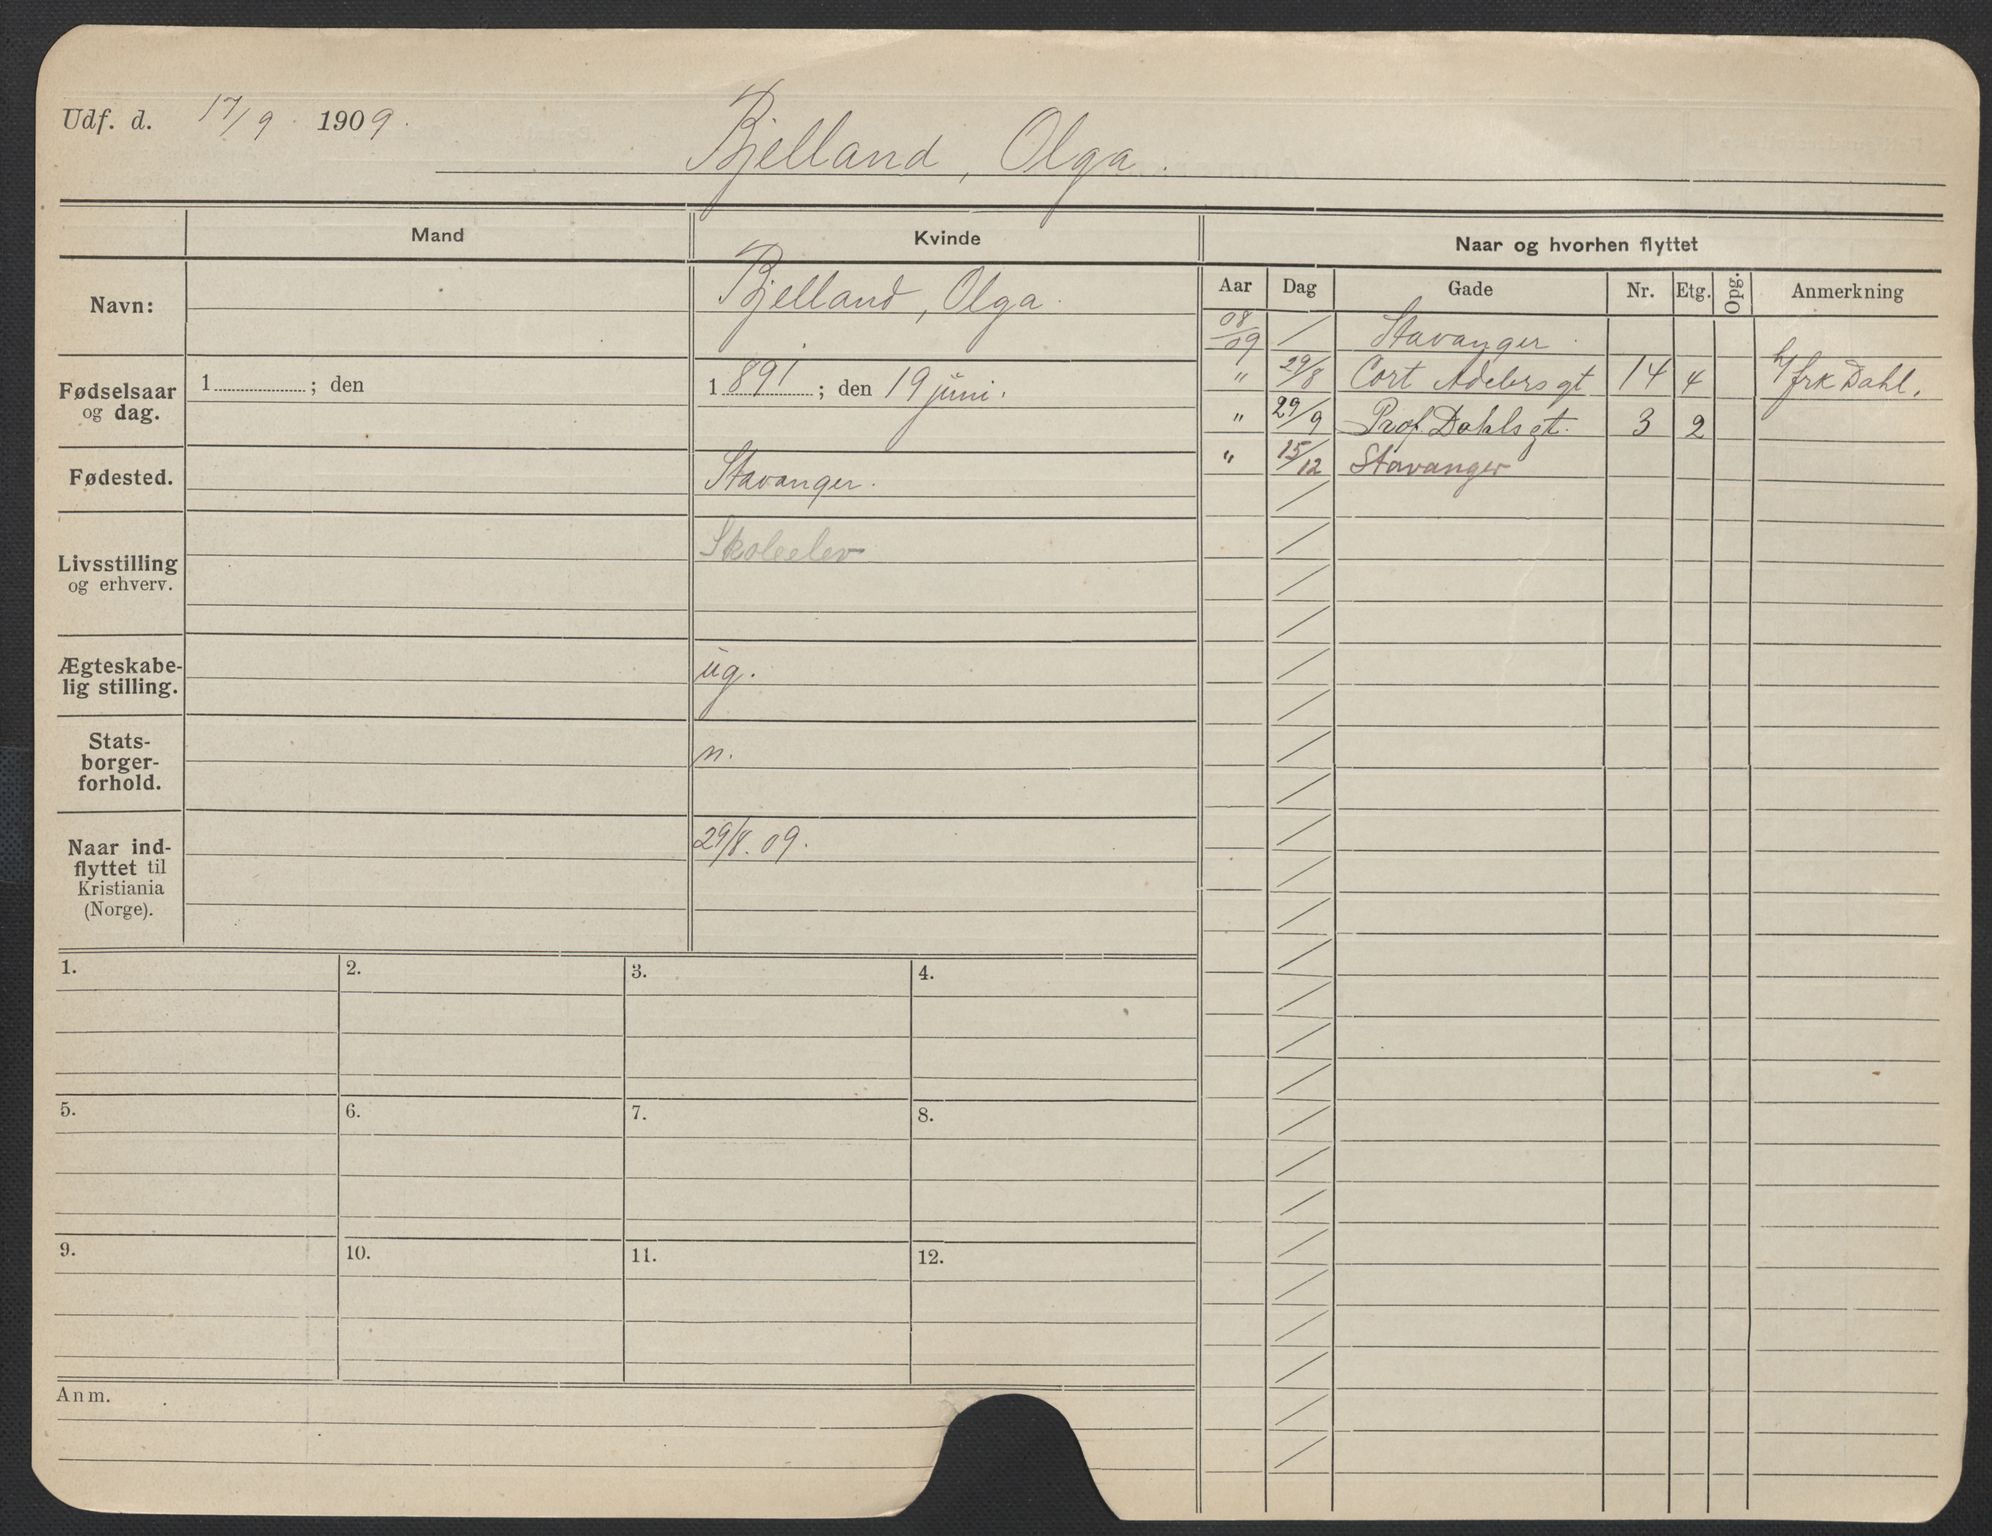 Udf. d. 17/9 1909.
Bjelland, Olga.
Mand
Kvinde
Naar og hvorhen flyttet
Navn:
Bjelland, Olga.
Fødselsaar
og dag.
1 ; den
1 891 ; den 19 juni.
Fødested.
Stavanger.
Livsstilling
og erhverv.
Skoleelev
Ægteskabe-
lig stilling.
ug.
Stats-
borger-
forhold.
n.
Naar ind-
flyttet til
Kristiania
(Norge).
29/8. 09.
Aar Dag Gade Nr. Etg. Opg. Anmerkning
08/09 / Stavanger.
" 29/8 Cort Adelers gt 14 4 h/ frk Dahl.
" 29/9 Prof. Dahls gt. 3 2
" 15/12 Stavanger
1. 2. 3. 4.
5. 6. 7. 8.
9. 10. 11. 12.
Anm.